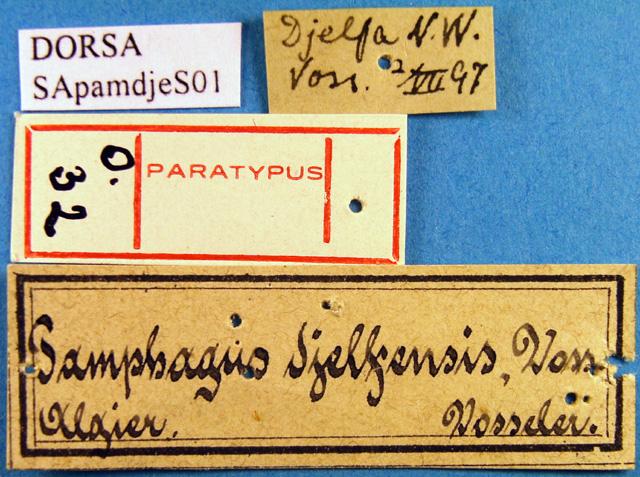 DORSA
SApamdjeS01
Djelfa N.W.
Voss. 2/VII 97
PARATYPUS
O.
32
Pamphagus djelfensis, Voss.
Algier. Vosseler.